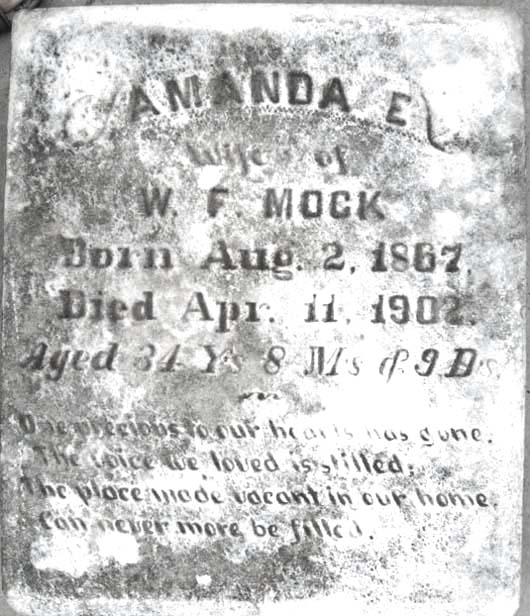 AMANDA E
Wife of
W. F. MOCK
Born Aug. 2, 1867.
Died Apr. 11, 1902.
Aged 34 Ys 8 Ms & 9 Ds.
One precious to our hearts has gone.
The voice we loved is stilled;
The place made vacant in our home.
Can never more be filled.